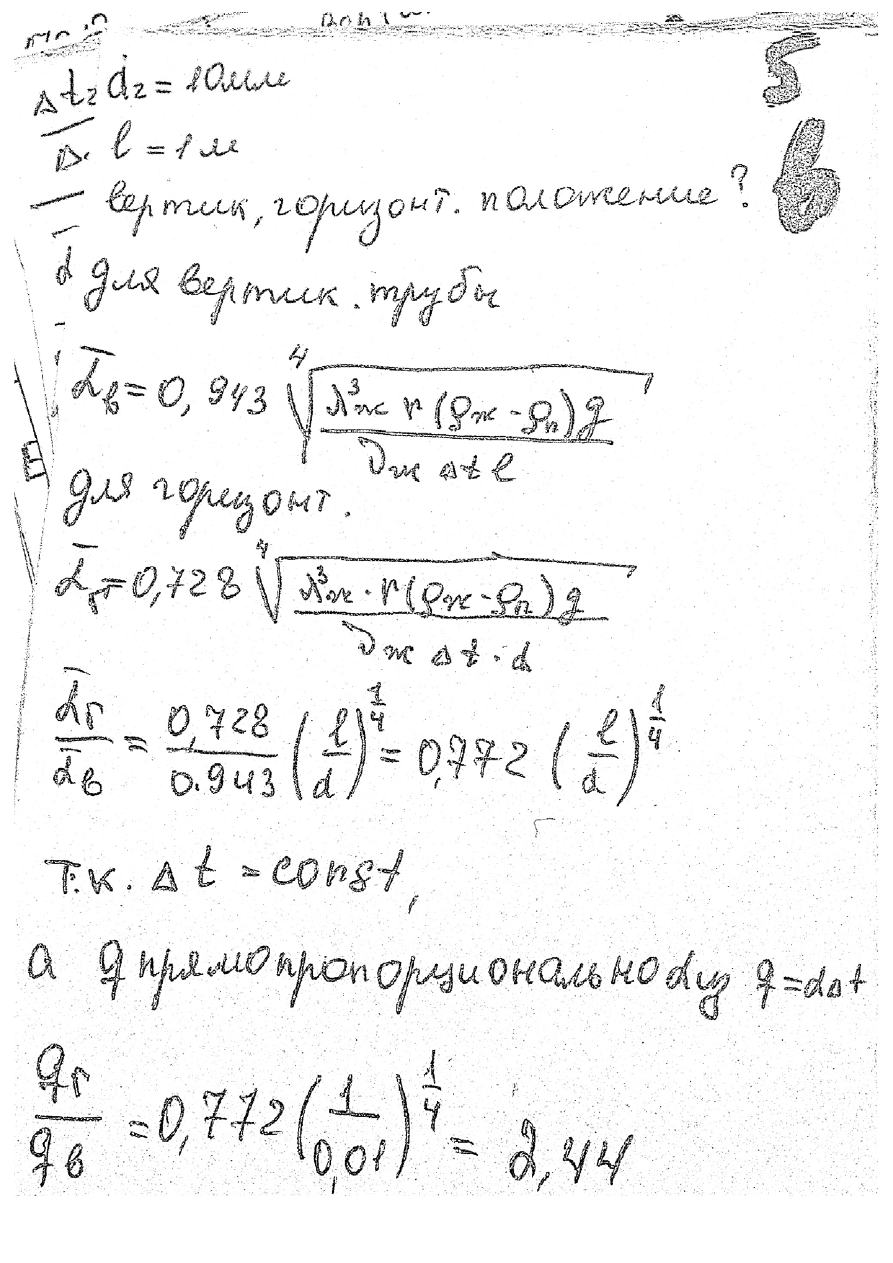 5
Δt₂ d₂ = 10мм
Δ. l = 1м
б
вертик, горизонт. положение?
для вертик. трубы
ᾱв = 0,943 ⁴√(λ³ж r (ρж - ρп) g / νж Δt l)
для горизонт.
ᾱг = 0,728 ⁴√(λ³ж · r (ρж - ρп) g / νж Δt · d)
ᾱг / ᾱв = 0,728 / 0.943 (l/d)^1/4 = 0,772 (l/d)^1/4
т.к. Δt = const,
а q прямопропорционально α из q = αΔt
qг / qв = 0,772 (1 / 0,01)^1/4 = 2,44